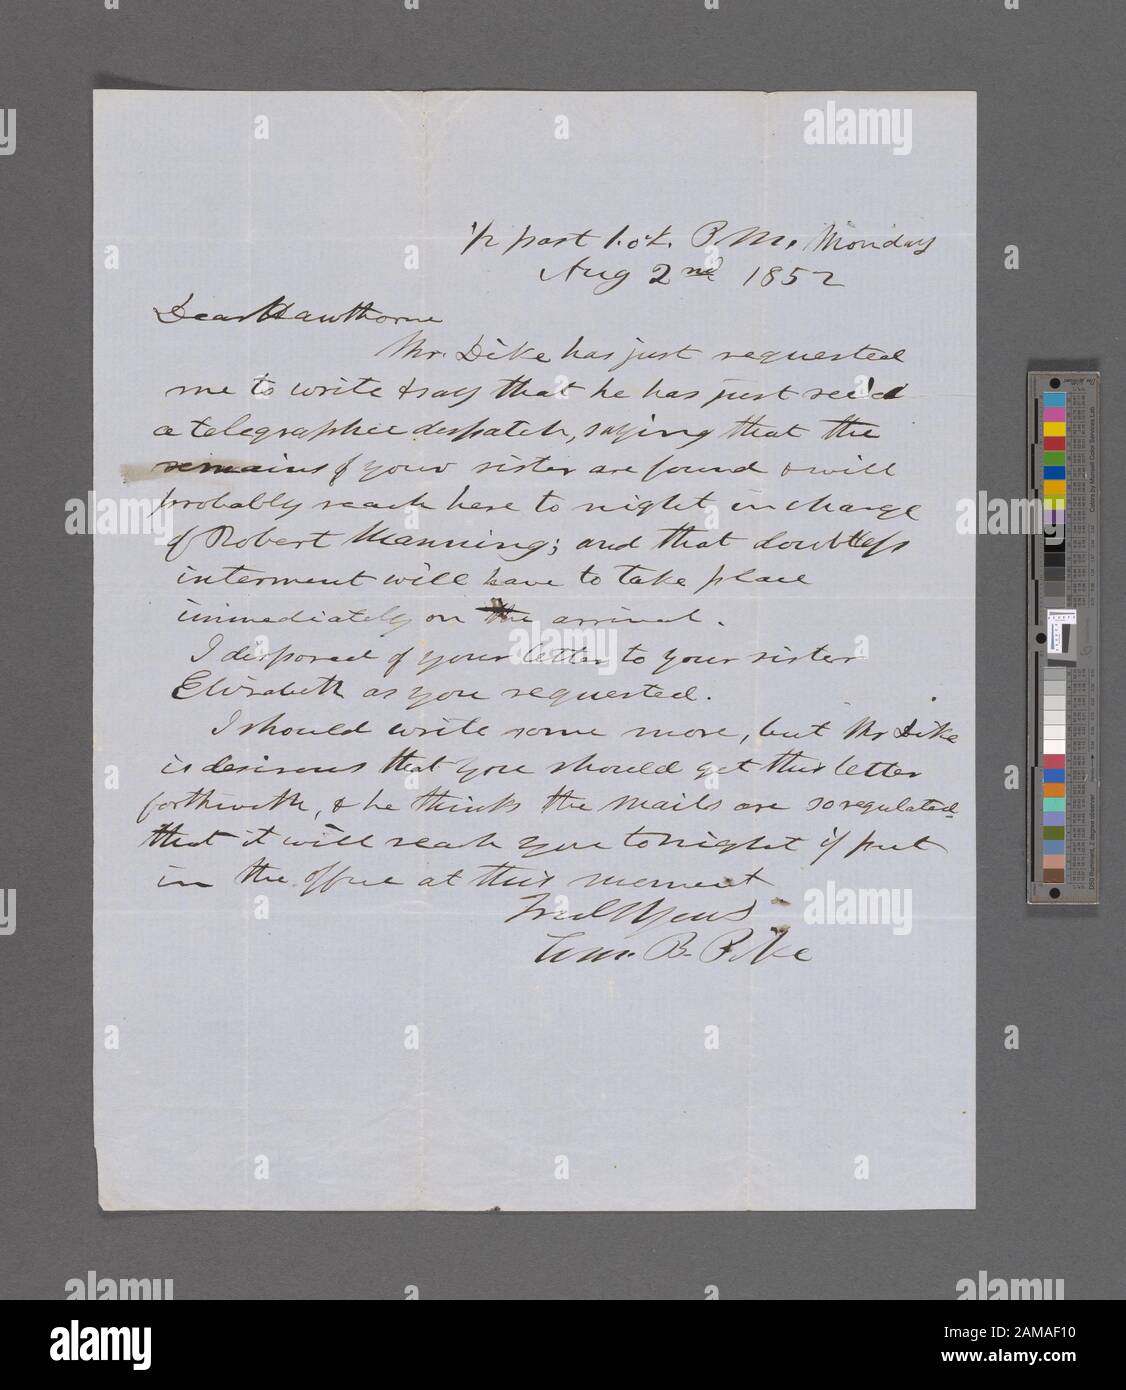 1/2 past 1. o'c. P.M. Monday
Aug 2nd 1852
Dear Hawthorne
Mr. Dike has just requested
me to write & say that he has just rec'd
a telegraphic despatch, saying that the
remains of your sister are found & will
probably reach here to night in charge
of Robert Manning; and that doubtless
interment will have to take place
immediately on the arrival.
I disposed of your letter to your sister
Elizabeth as you requested.
I should write some more, but Mr Dike
is desirous that you should get this letter
forthwith, & he thinks the mails are so regulated
that it will reach you tonight if put
in the office at this moment
Truly Yours
Wm. B. Pike
alamy
Image ID: 2AMAF10
www.alamy.com